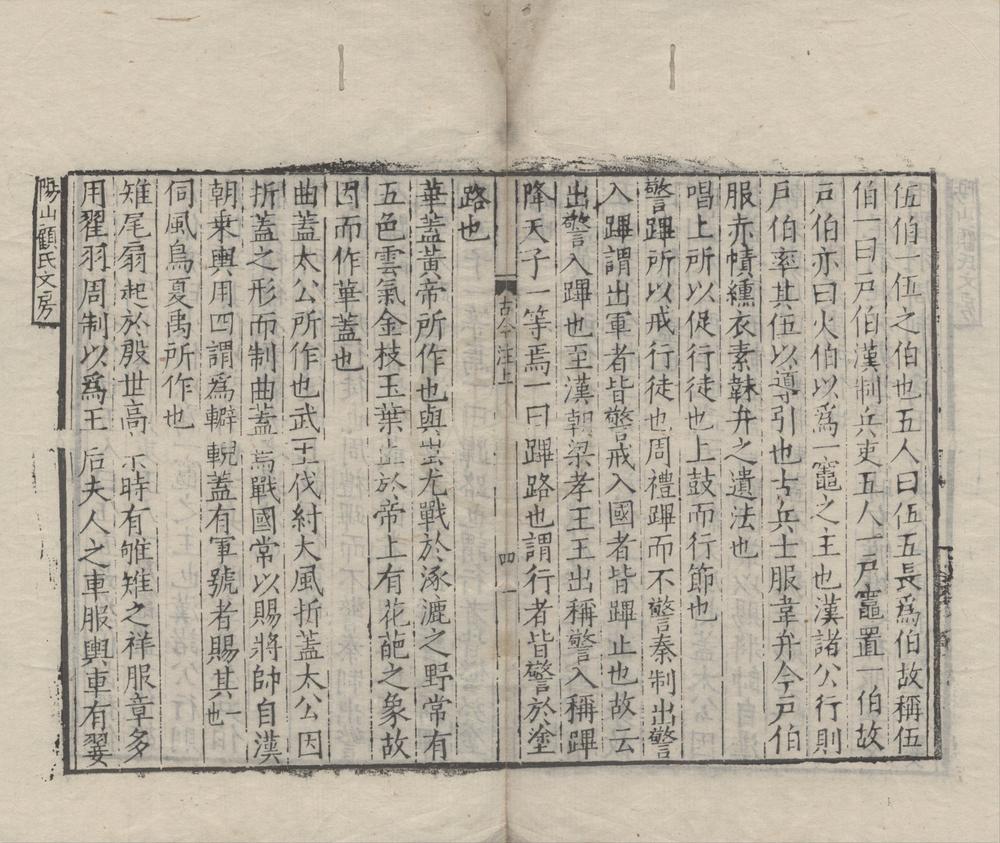 伍伯一伍之伯也五人曰伍五長爲伯故稱伍
伯一曰戸伯漢制兵吏五人一戸竈置一伯故
戸伯亦曰火伯以爲一竈之主也漢諸公行則
戸伯率其伍以導引也古兵士服韋弁今戸伯
服赤幘纁衣素韎弁之遺法也
唱上所以促行徒也上鼓而行節也
警蹕所以戒行徒也周禮蹕而不警秦制出警
入蹕謂出軍者皆警戒入國者皆蹕止也故云
出警入蹕也至漢朝梁孝王王出稱警入稱蹕
降天子一等焉一曰蹕路也謂行者皆警於塗
古今注上
四
路也
華蓋黃帝所作也與蚩尤戰於涿鹿之野常有
五色雲氣金枝玉葉止於帝上有花葩之象故
因而作華蓋也
曲蓋太公所作也武王伐紂大風折蓋太公因
折蓋之形而制曲蓋焉戰國常以賜將帥自漢
朝乘輿用四謂爲轓輗蓋有軍號者賜其一也
伺風烏夏禹所作也
雉尾扇起於殷世高 時有雊雉之祥服章多
用翟羽周制以爲王后夫人之車服輿車有翣
陽山顧氏文房